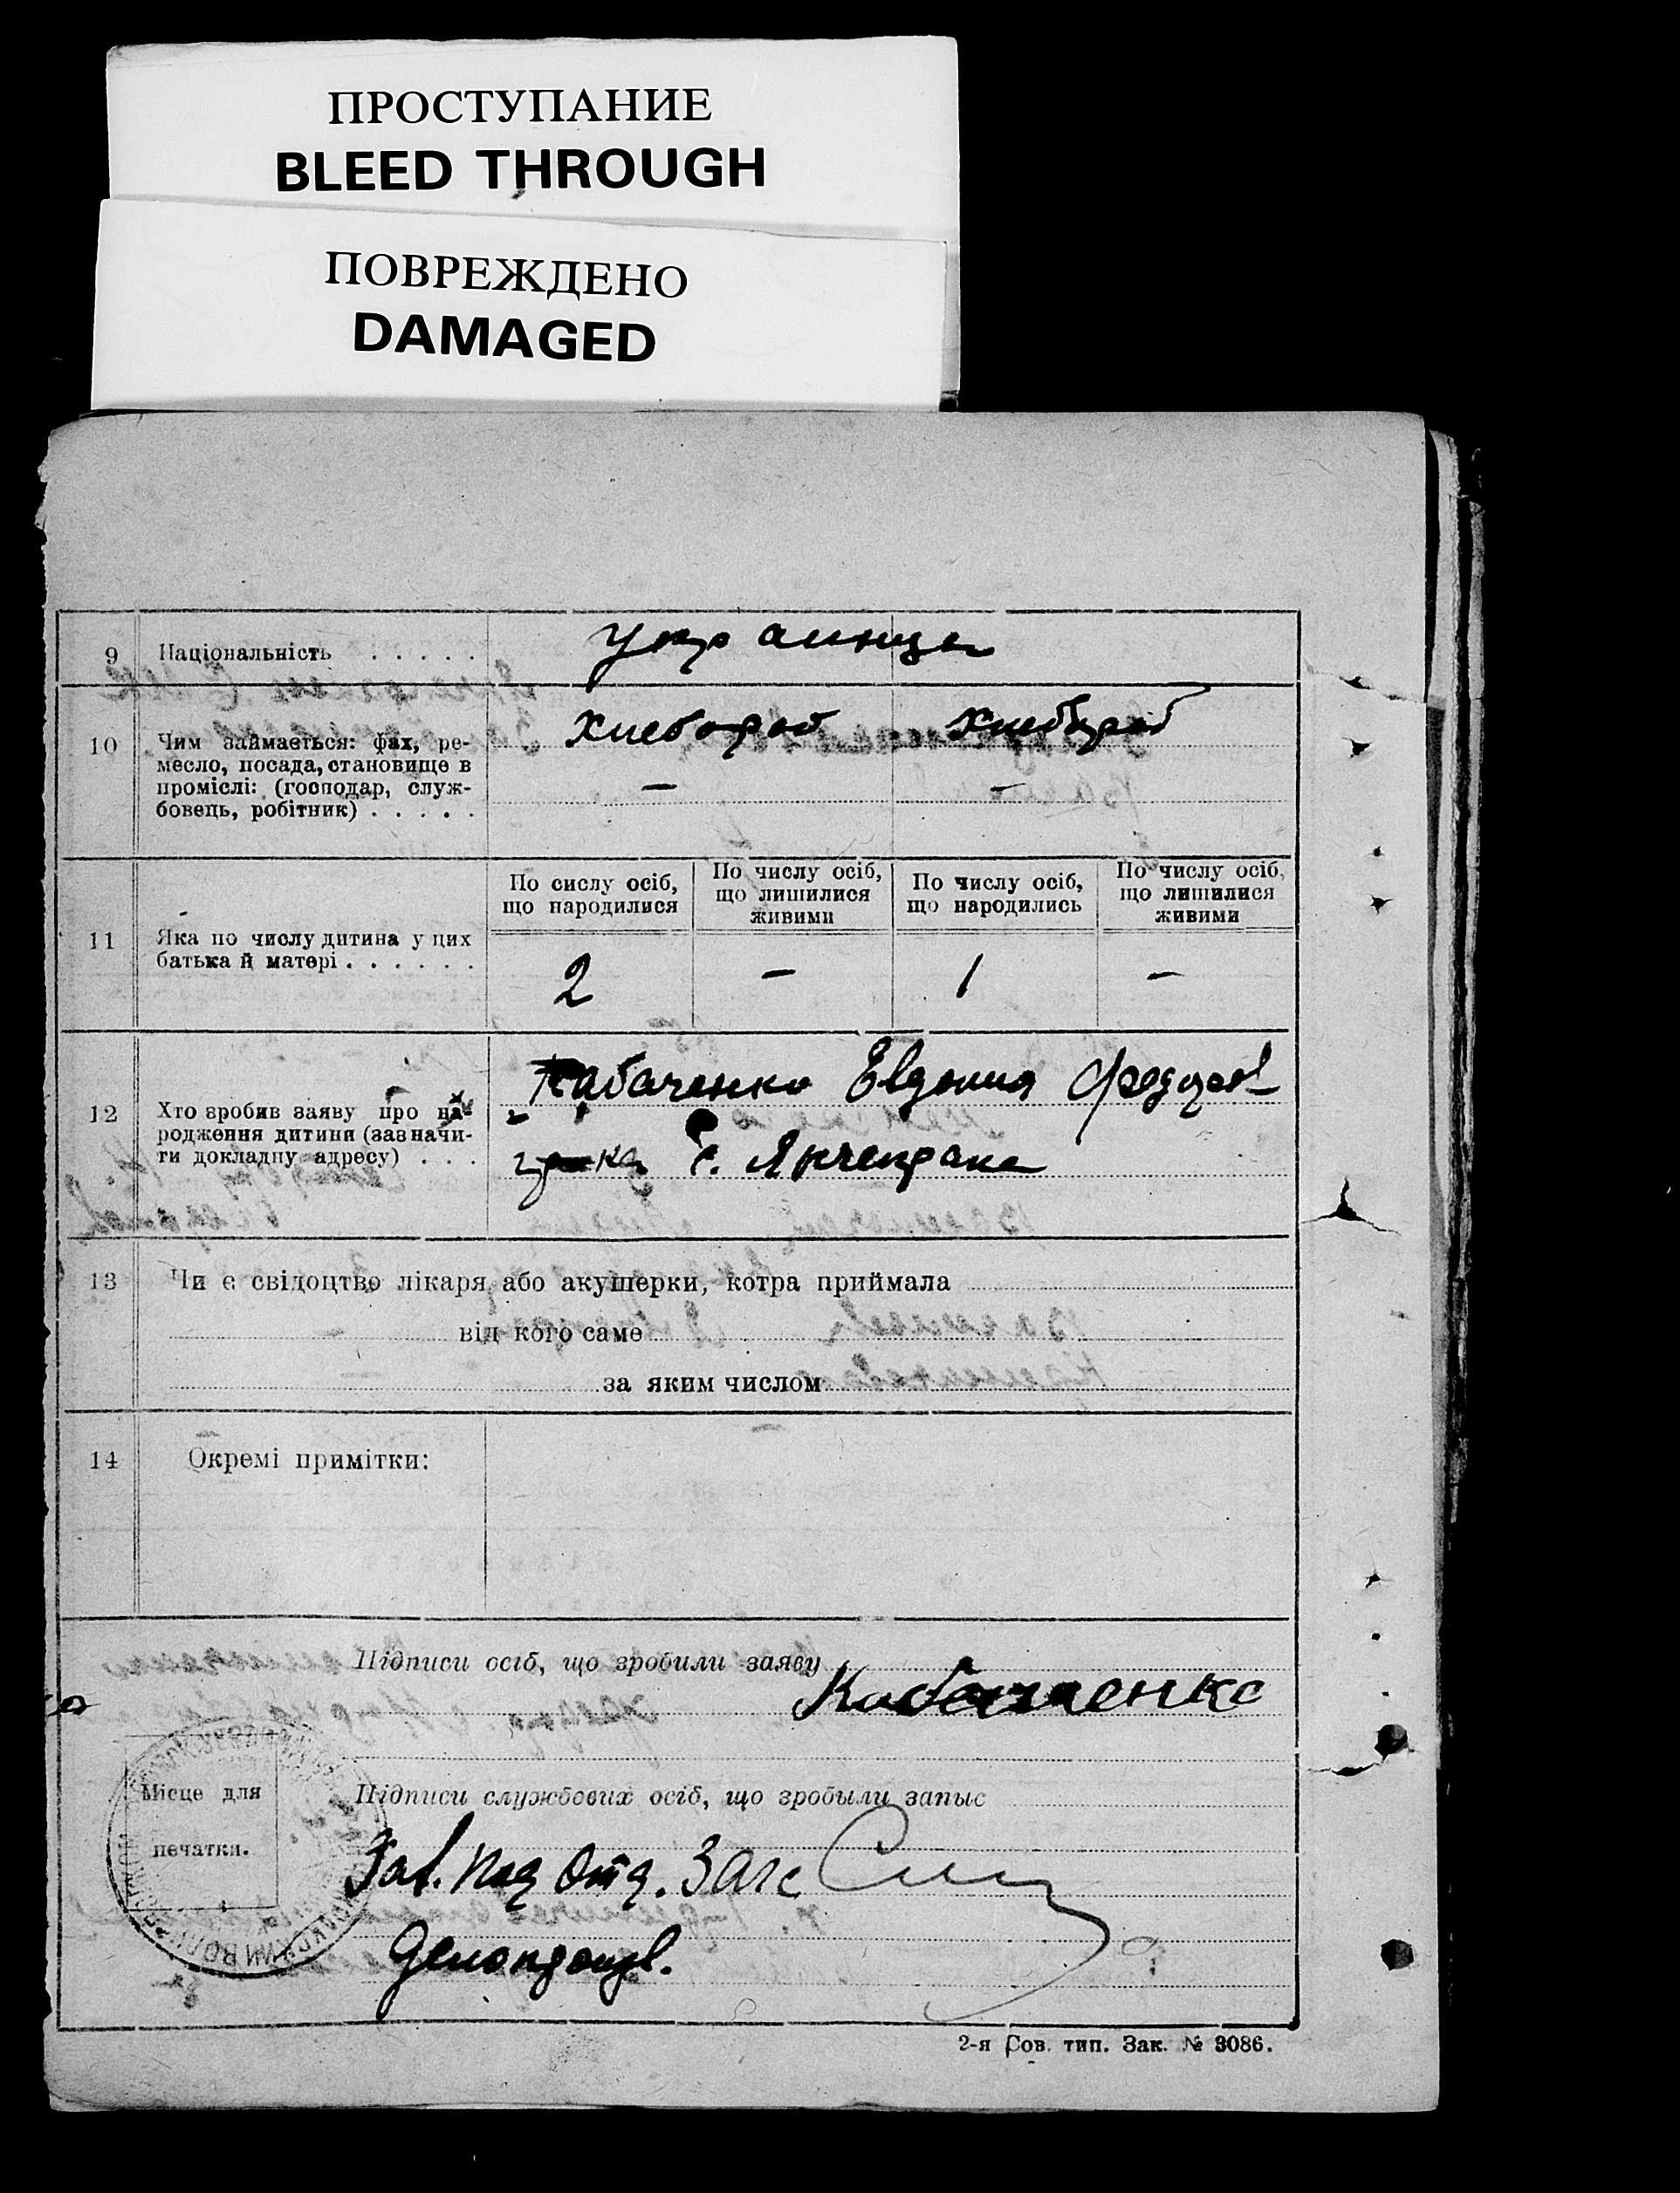 ПРОСТУПАНИЕ
BLEED THROUGH
ПОВРЕЖДЕНО
DAMAGED
9 Національність . . . . . украинцы
10 Чим займається: фах, ре-
месло, посада, становище в
проміслі: (господар, служ-
бовець, робітник) . . . . .
Хлебороб Хлебороб
— —
11 Яка по числу дитина у цих
батька й матері . . . . . .
По сислу осіб,
що народилися
По числу осіб,
що лишилися
живими
По числу осіб,
що народились
По числу осіб,
що лишилися
живими
2 — 1 —
12 Хто зробив заяву про на-
родження дитини (зазначи-
ти докладну адресу) . . .
Кабаченко Евдокия Федоров
с.
13 Чи є свідоцтво лікаря або акушерки, котра приймала
від кого саме
за яким числом
14 Окремі примітки:
Підписи осіб, що зробили заяву
Кабаченко
Місце для
печатки.
Підписи службових осіб, що зробыли запыс
Зав. Под Отд. Загс
Делопроизв.
2-я Сов. тип. Зак. № 3086.